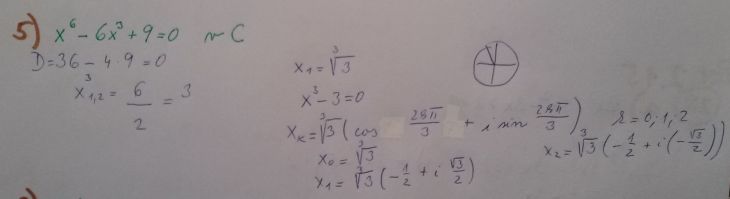 5) x⁶ - 6x³ + 9 = 0 ~ C
D = 36 - 4 · 9 = 0
x³₁,₂ = 6/2 = 3
x₁ = ³√3
x³ - 3 = 0
xₖ = ³√3 (cos 2kπ/3 + i sin 2kπ/3) k = 0, 1, 2
x₀ = ³√3
x₁ = ³√3 (-1/2 + i √3/2)
x₂ = ³√3 (-1/2 + i (-√3/2))